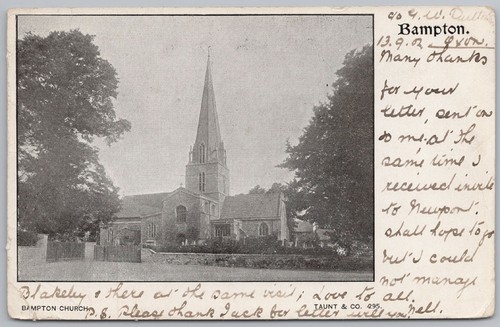 c/o G. W. Dutton
Bampton.
13.9.02 Oxon.
Many thanks
for your
letter, sent on
to me. at the
same time I
received invite
to Newport.
shall hope to go
but I could
not manage
Blakeley & there at the same visit; Love to all.
BAMPTON CHURCH.
TAUNT & CO. 295.
P.S. Please thank Jack for letter will you, Nell.